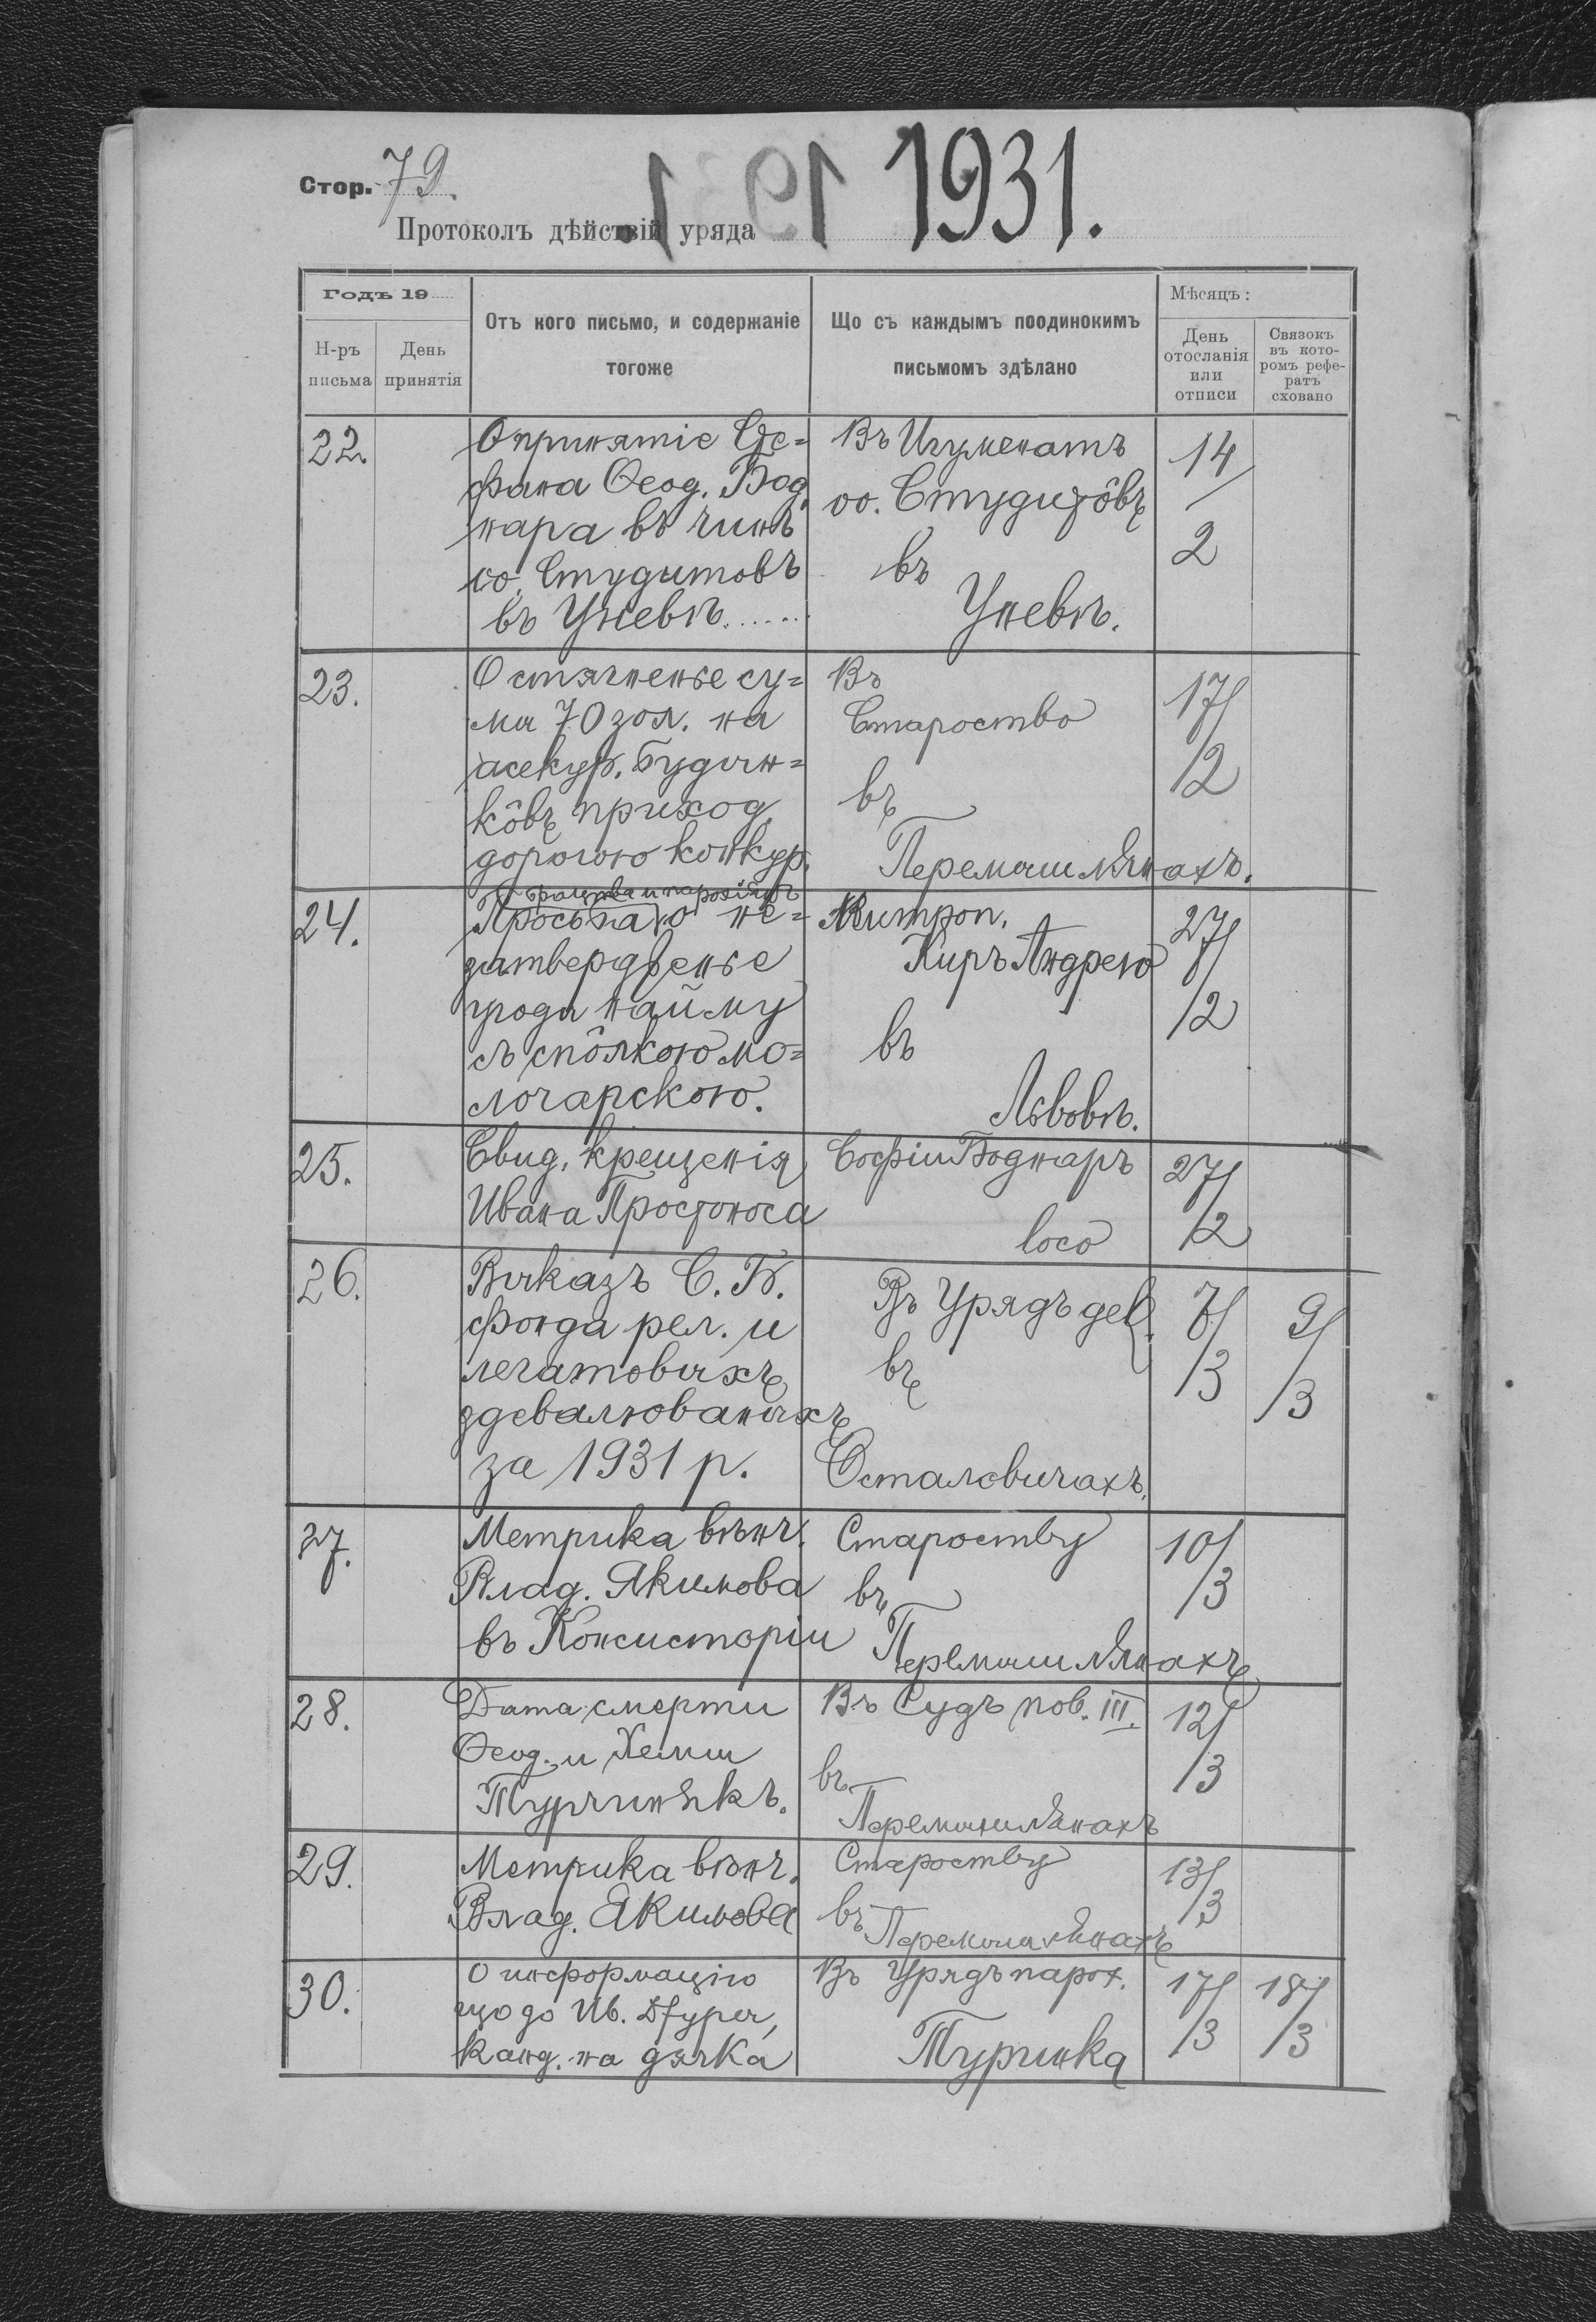 Стор. 79.
1931.
Протоколъ дѣйствій уряда
Годъ 19
Н-ръ письма
День принятія
Отъ кого письмо, и содержаніе тогоже
Що съ каждымъ поодинокимъ письмомъ здѣлано
Мѣсяцъ:
День отосланія или отписи
Связокъ въ кото-ромъ рефе-ратъ сховано
22.
О принятіе Сте=
фана Ѳеод. Бод
нара въ чинъ
оо. Студитовъ
въ Уневѣ......
Въ Игуменатъ
оо. Студитôвъ
въ
Уневѣ.
14/2
23.
О стягненье су=
мы 70 зол. на
асекур. будын=
кôвъ приход.
дорогою конкур.
Въ
Староство
въ
Перемышлянахъ.
17/2
24.
братства и парохіянъ
Просьба о не=
затвердженье
угоды найму
съ спôлкою мо=
лочарскою.
Митроп.
Киръ Андрею
въ
Львовѣ.
27/2
25.
Свид. крещенія
Ивана Простоноса
Софіи Боднаръ
loco
27/2
26.
Выказъ С. Б.
фонда рел. и
легатовыхъ
здевалюваныхъ
за 1931 р.
Въ Урядъ дек.
въ
Осталовичахъ.
7/3
9/3
27.
Метрика вѣнч.
Влад. Якимова
въ Консисторіи
Староству
въ
Перемышлянахъ
10/3
28.
Дата смерти
Ѳеод. и
Турчинякъ.
Въ Судъ пов. III.
въ
Перемышлянахъ
12/3
29.
Метрика вѣнч.
Влад. Якимова
Староству
въ Перемышлянахъ
13/3
30.
О информацію
що до Ив.
канд. на дяка
Въ Урядъ парох.
Туринка
17/3
18/3